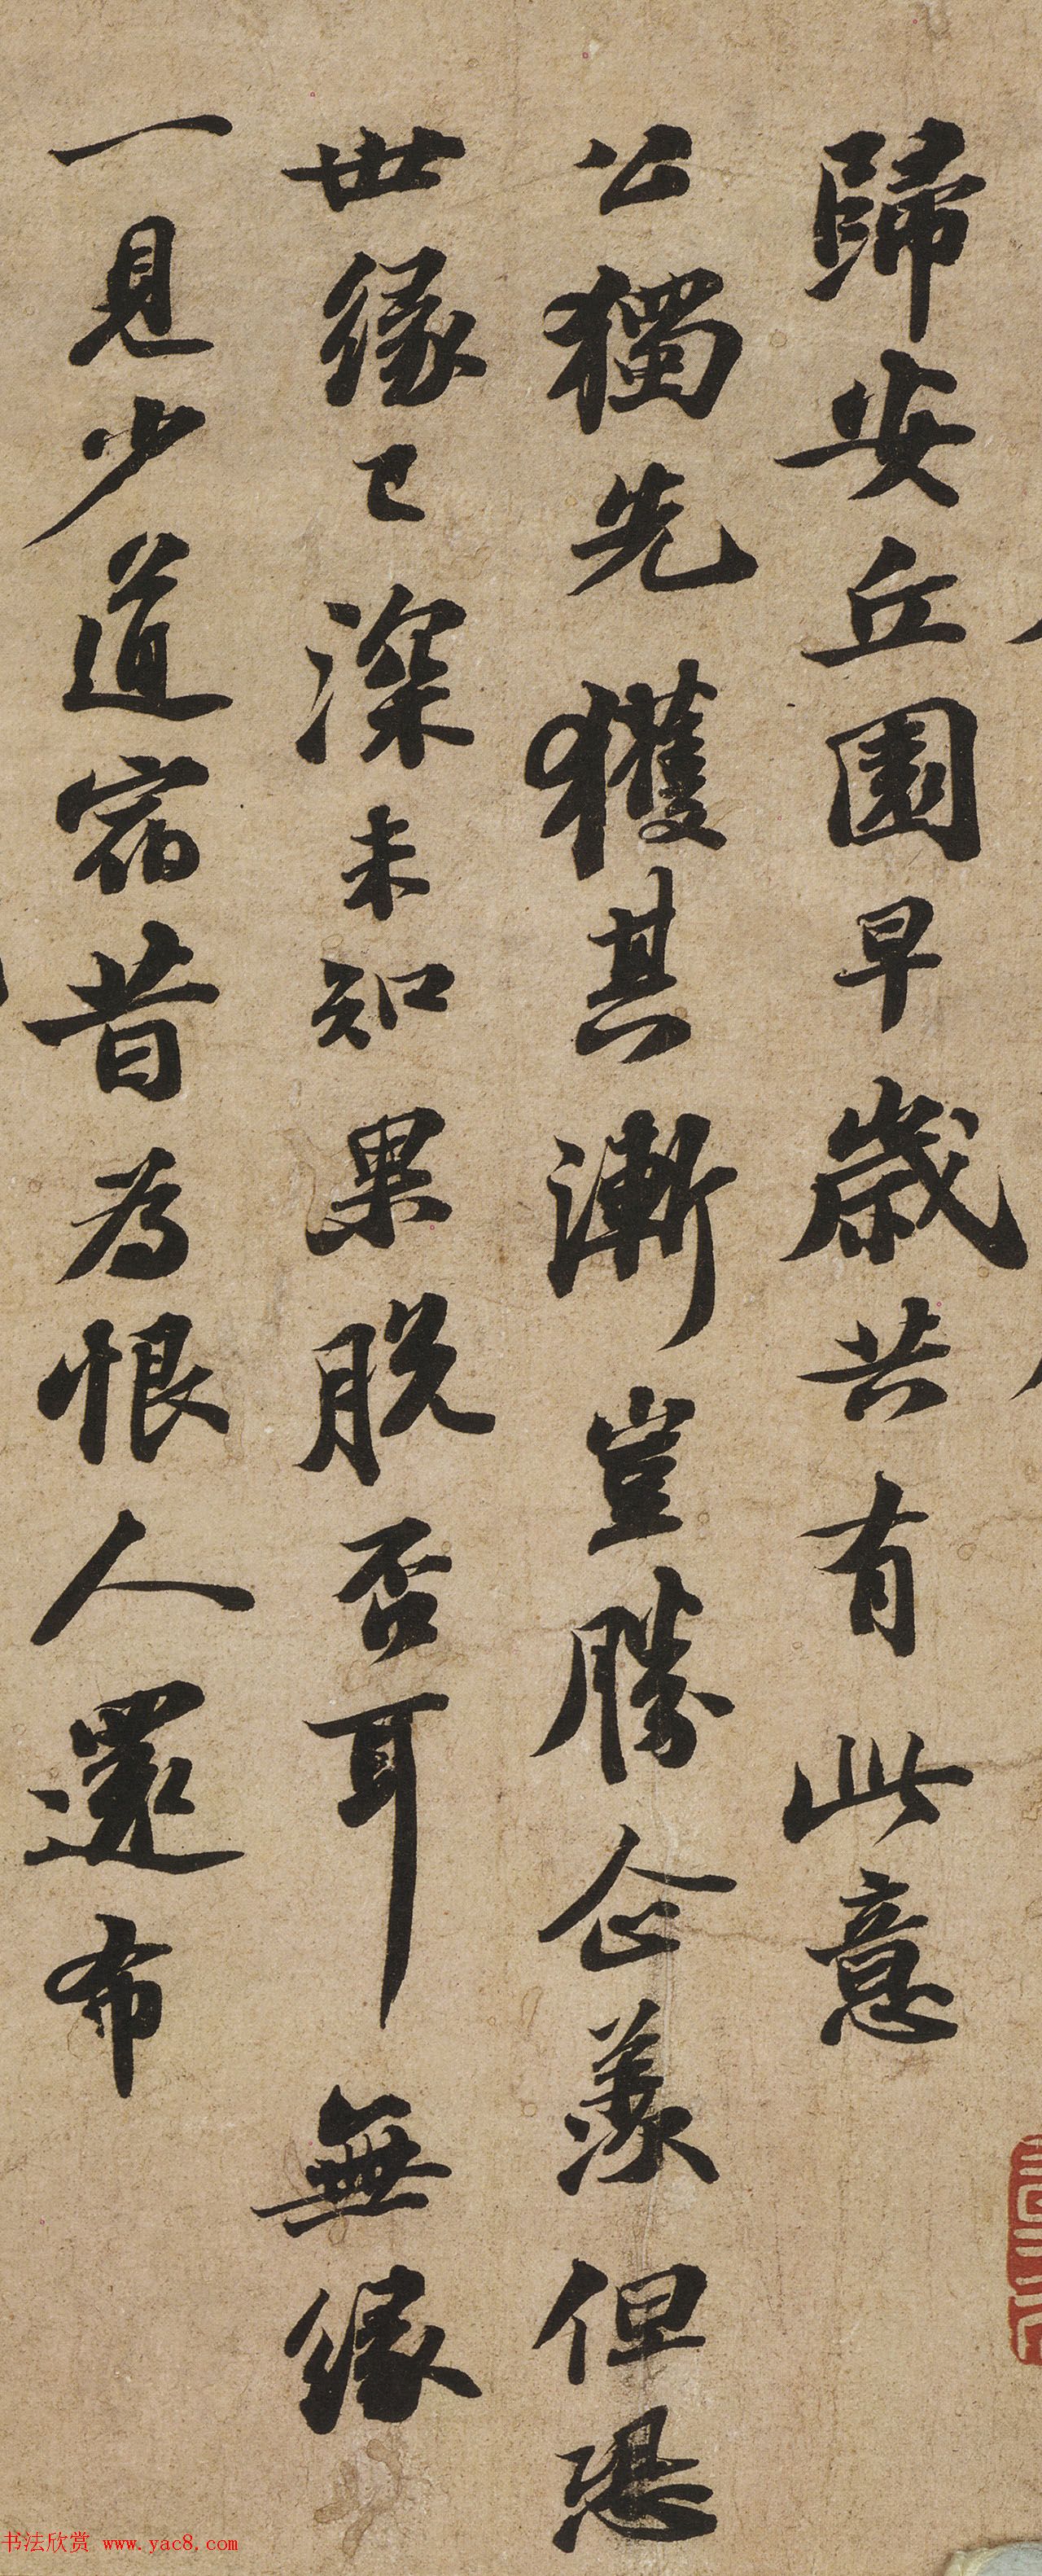 歸安丘園早歲共有此意
公獨先獲其漸豈勝企羨但恐
世緣已深未知果脫否耳無緣
一見少道宿昔為恨人還布
书法欣赏 www.yac8.com